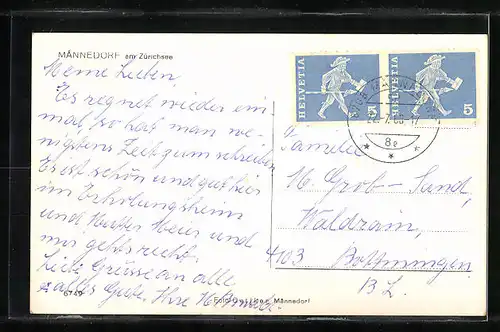 MÄNNEDORF am Zürichsee
Meine Lieben,
Es regnet wieder ein-
mal, so hat man we-
nigstens Zeit zum schreiben
Es ist schön und gut hier
im Erholungsheim
und Mutter Meier und
mir gehts recht.
Liebe Grüsse an alle
alles Gute, Ihre
6749
HELVETIA 5
HELVETIA 5
8e
Familie
M. Grob-Sand,
Waldrain,
4103 Bottmingen
B.L.
Männedorf